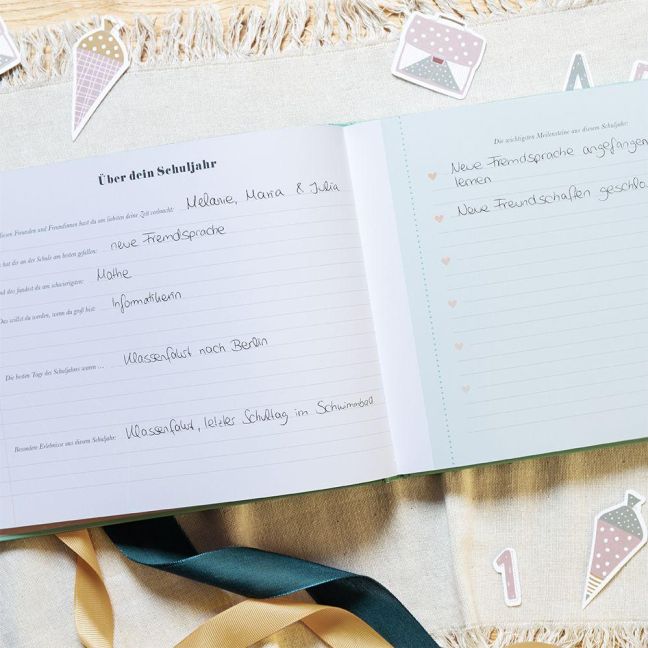 Über dein Schuljahr
diesen Freunden und Freundinnen hast du am liebsten deine Zeit verbracht: Melanie, Maria & Julia
hat dir an der Schule am besten gefallen: neue Fremdsprache
und das fandest du am schwierigsten: Mathe
Das willst du werden, wenn du groß bist: Infomatikerin
Die besten Tage des Schuljahres waren ... Klassenfahrt nach Berlin
Besondere Erlebnisse aus diesem Schuljahr: Klassenfahrt, letzter Schultag im Schwimmbad
Die wichtigsten Meilensteine aus diesem Schuljahr:
Neue Fremdsprache angefangen
lernen
Neue Freundschaften geschlo
A
1